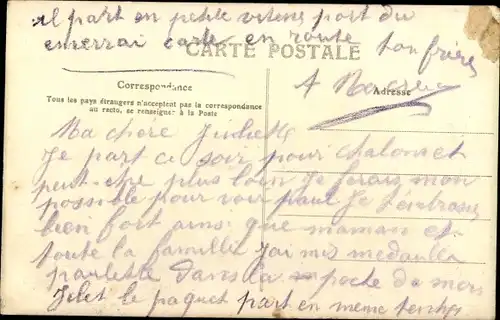 il part en petite vitesse port du
enverrai carte en route ton frère
CARTE POSTALE
A
Correspondance
Adresse
Tous les pays étrangers n'acceptent pas la correspondance
au recto, se renseigner à la Poste
Ma chere Juliette
Je part ce soir pour chalons et
peut-etre plus loin Je ferais mon
possible pour voir paul Je t'embrasse
bien fort ainsi que maman et
toute la famille J'ai mis medaille
paulette dans la poche de mon
gilet le paquet part en meme temps